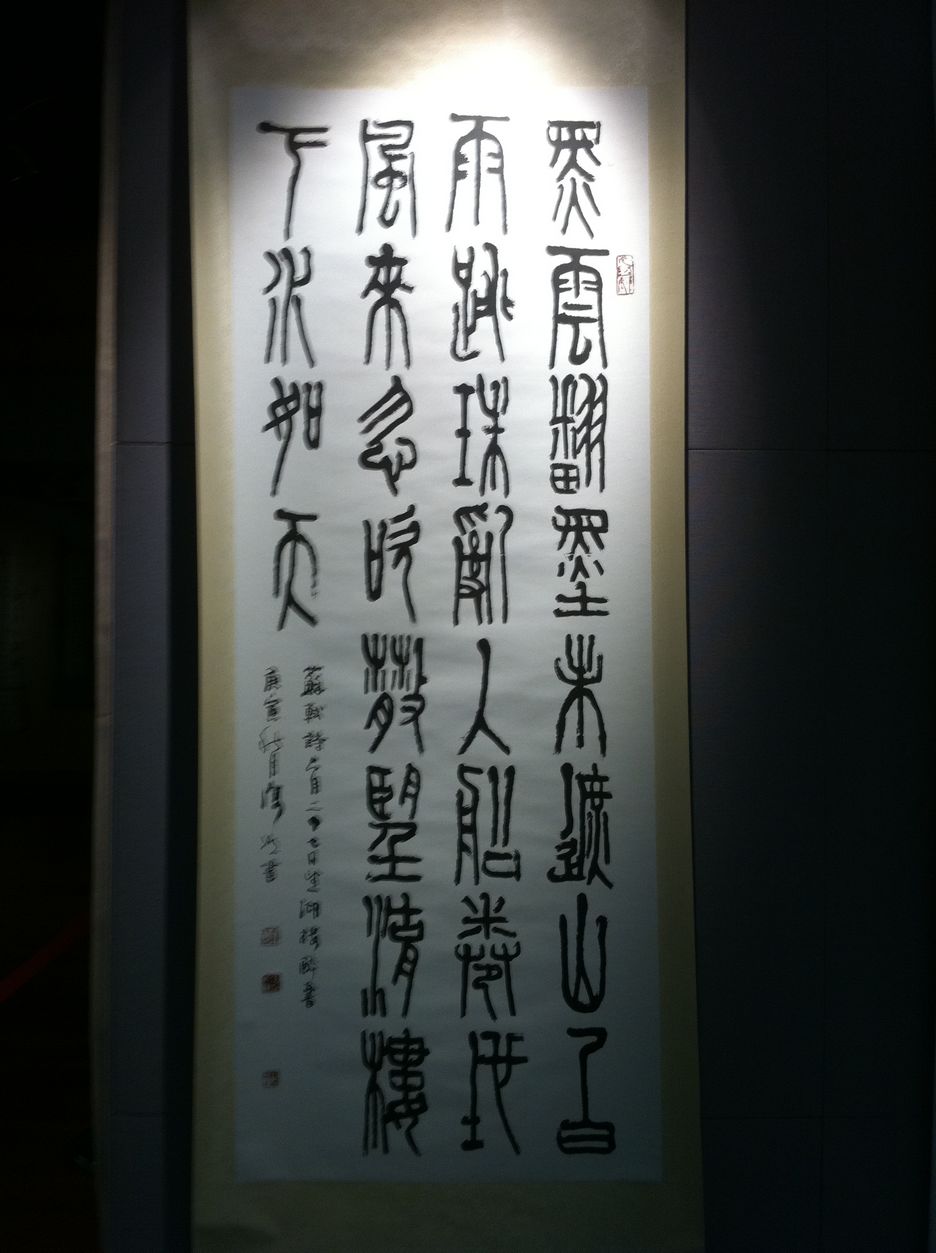 黑雲翻墨未遮山白
雨跳珠亂入船卷地
風來忽吹散望湖樓
下水如天
蘇軾詩六月二十七日望湖樓醉書
庚寅 月 書